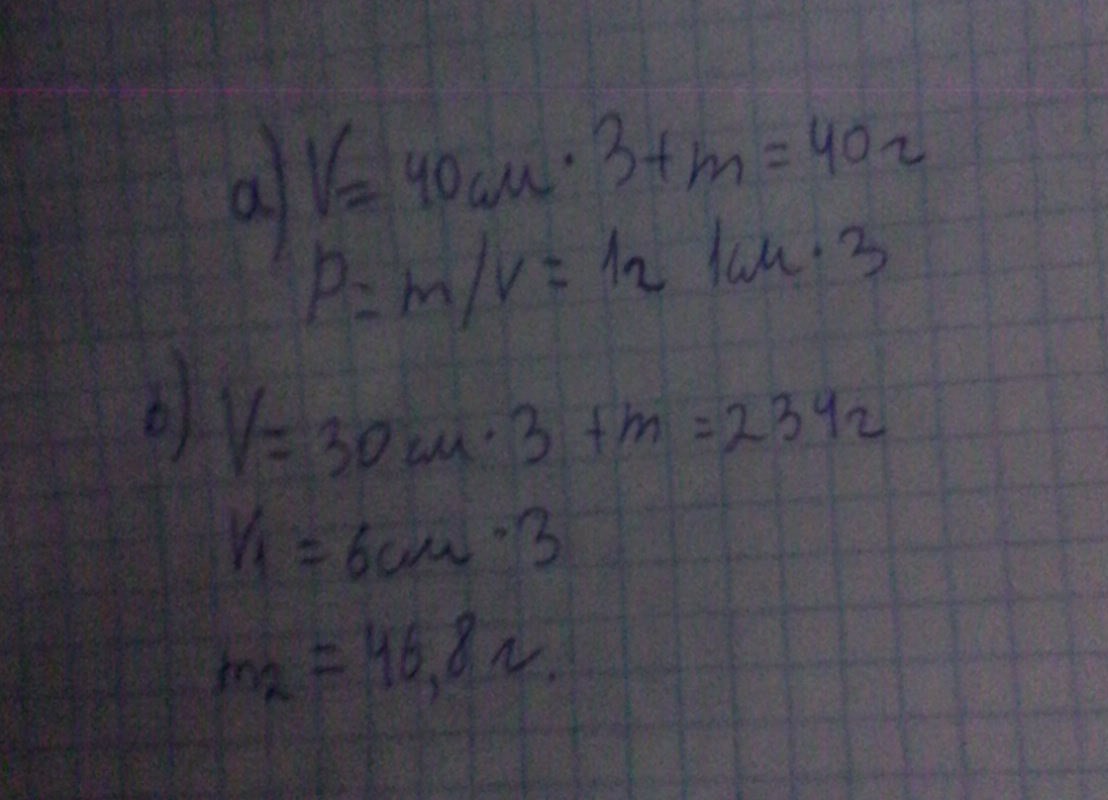 а) V= 40см·3+m=40г
P= m/v= 1г 1см·3
б) V= 30см·3 +m =234г
V1 =6см·3
m2 =46,8г.